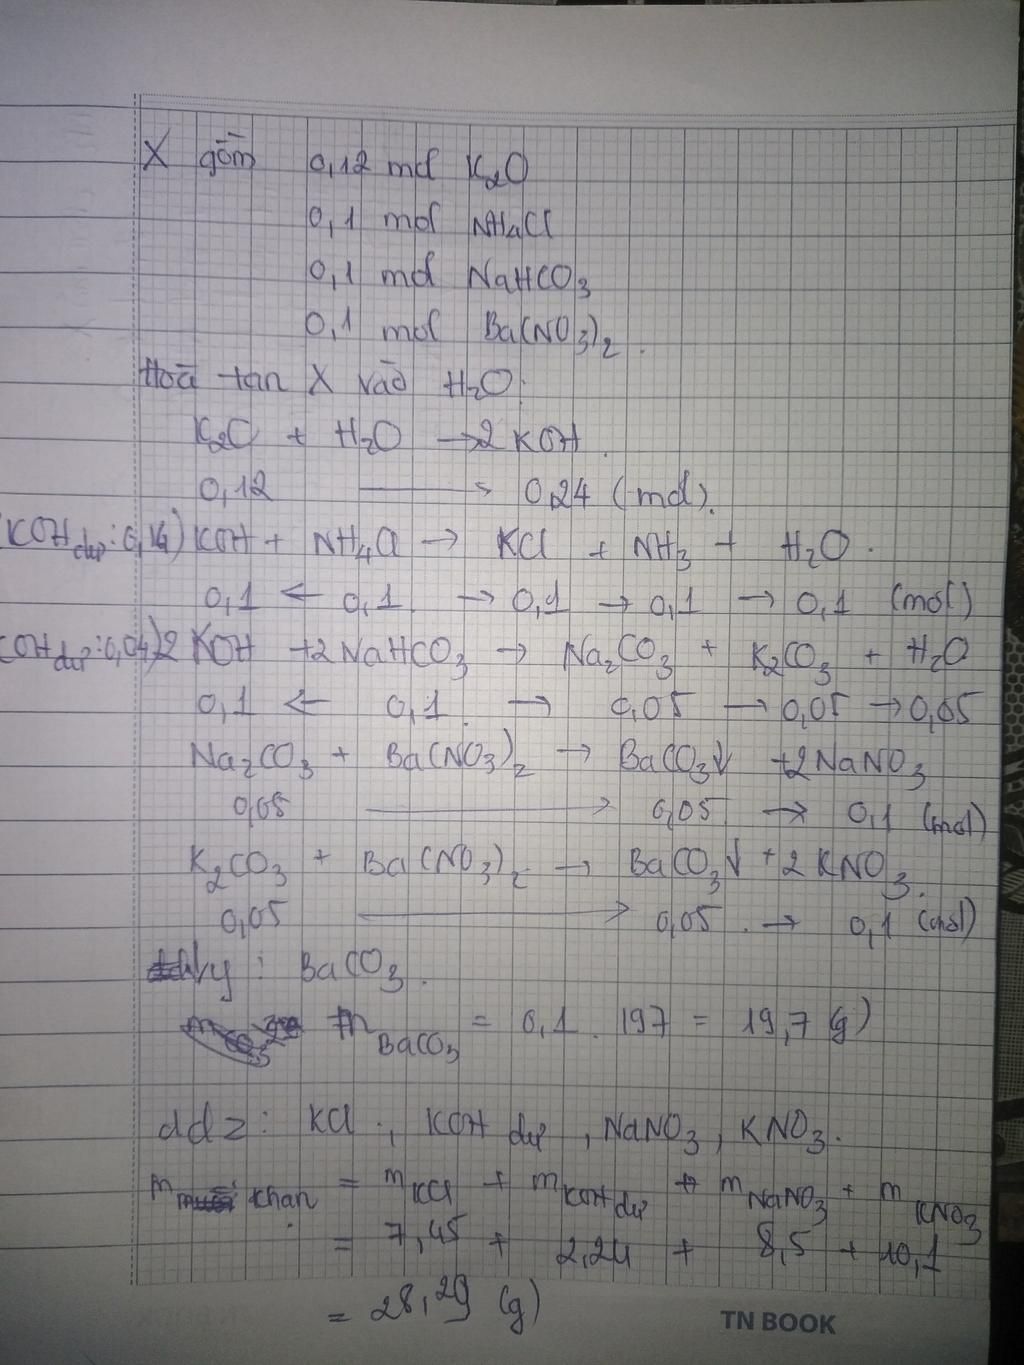 X gồm 0,12 mol K₂O
0,1 mol NH₄Cl
0,1 mol NaHCO₃
0,1 mol Ba(NO₃)₂.
Hoà tan X vào H₂O:
K₂O + H₂O → 2KOH.
0,12 → 0,24 (mol).
(KOH dư: 0,14) KOH + NH₄Cl → KCl + NH₃ + H₂O.
0,1 ← 0,1 → 0,1 → 0,1 → 0,1 (mol)
(KOH dư: 0,04) 2KOH + 2NaHCO₃ → Na₂CO₃ + K₂CO₃ + H₂O
0,1 ← 0,1 → 0,05 → 0,05 → 0,05
Na₂CO₃ + Ba(NO₃)₂ → BaCO₃↓ + 2NaNO₃
0,05 → 0,05 → 0,1 (mol)
K₂CO₃ + Ba(NO₃)₂ → BaCO₃↓ + 2KNO₃.
0,05 → 0,05 → 0,1 (mol)
Y : BaCO₃.
m BaCO₃ = 0,1 . 197 = 19,7 (g)
dd Z : KCl, KOH dư, NaNO₃, KNO₃.
m khan = m KCl + m KOH dư + m NaNO₃ + m KNO₃
= 7,45 + 2,24 + 8,5 + 10,1
= 28,29 (g)
TN BOOK